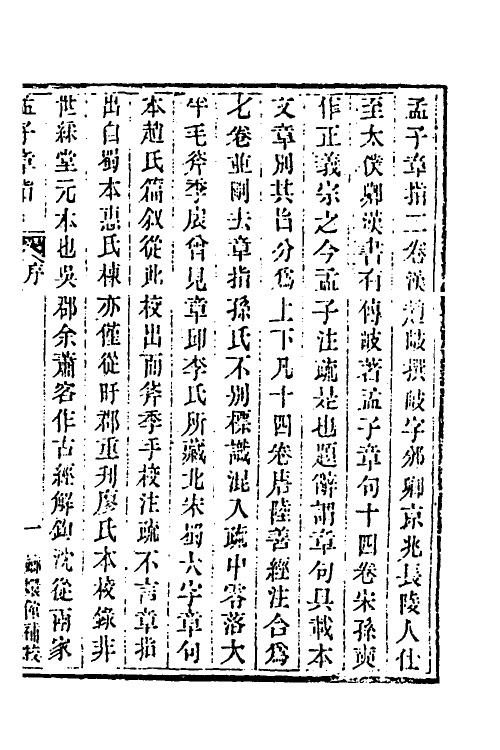 孟子章指二卷漢趙岐撰岐字邠卿京兆長陵人仕
至太僕卿漢書有傳岐著孟子章句十四卷宋孫奭
作正義宗之今孟子注疏是也題辭謂章句具載本
文章別其旨分爲上下凡十四卷唐陸善經注合爲
七卷並刪去章指孫氏不別標識混入疏中零落大
半毛斧季扆曾見章邱李氏所藏北宋蜀大字章句
本趙氏篇叙從此校出而斧季手校注疏不言章指
出自蜀本惠氏棟亦僅從盱郡重刊廖氏本校錄非
世綵堂元本也吳郡余蕭客作古經解鉤沈從兩家
孟子章指 序 一 嫏嬛館補校